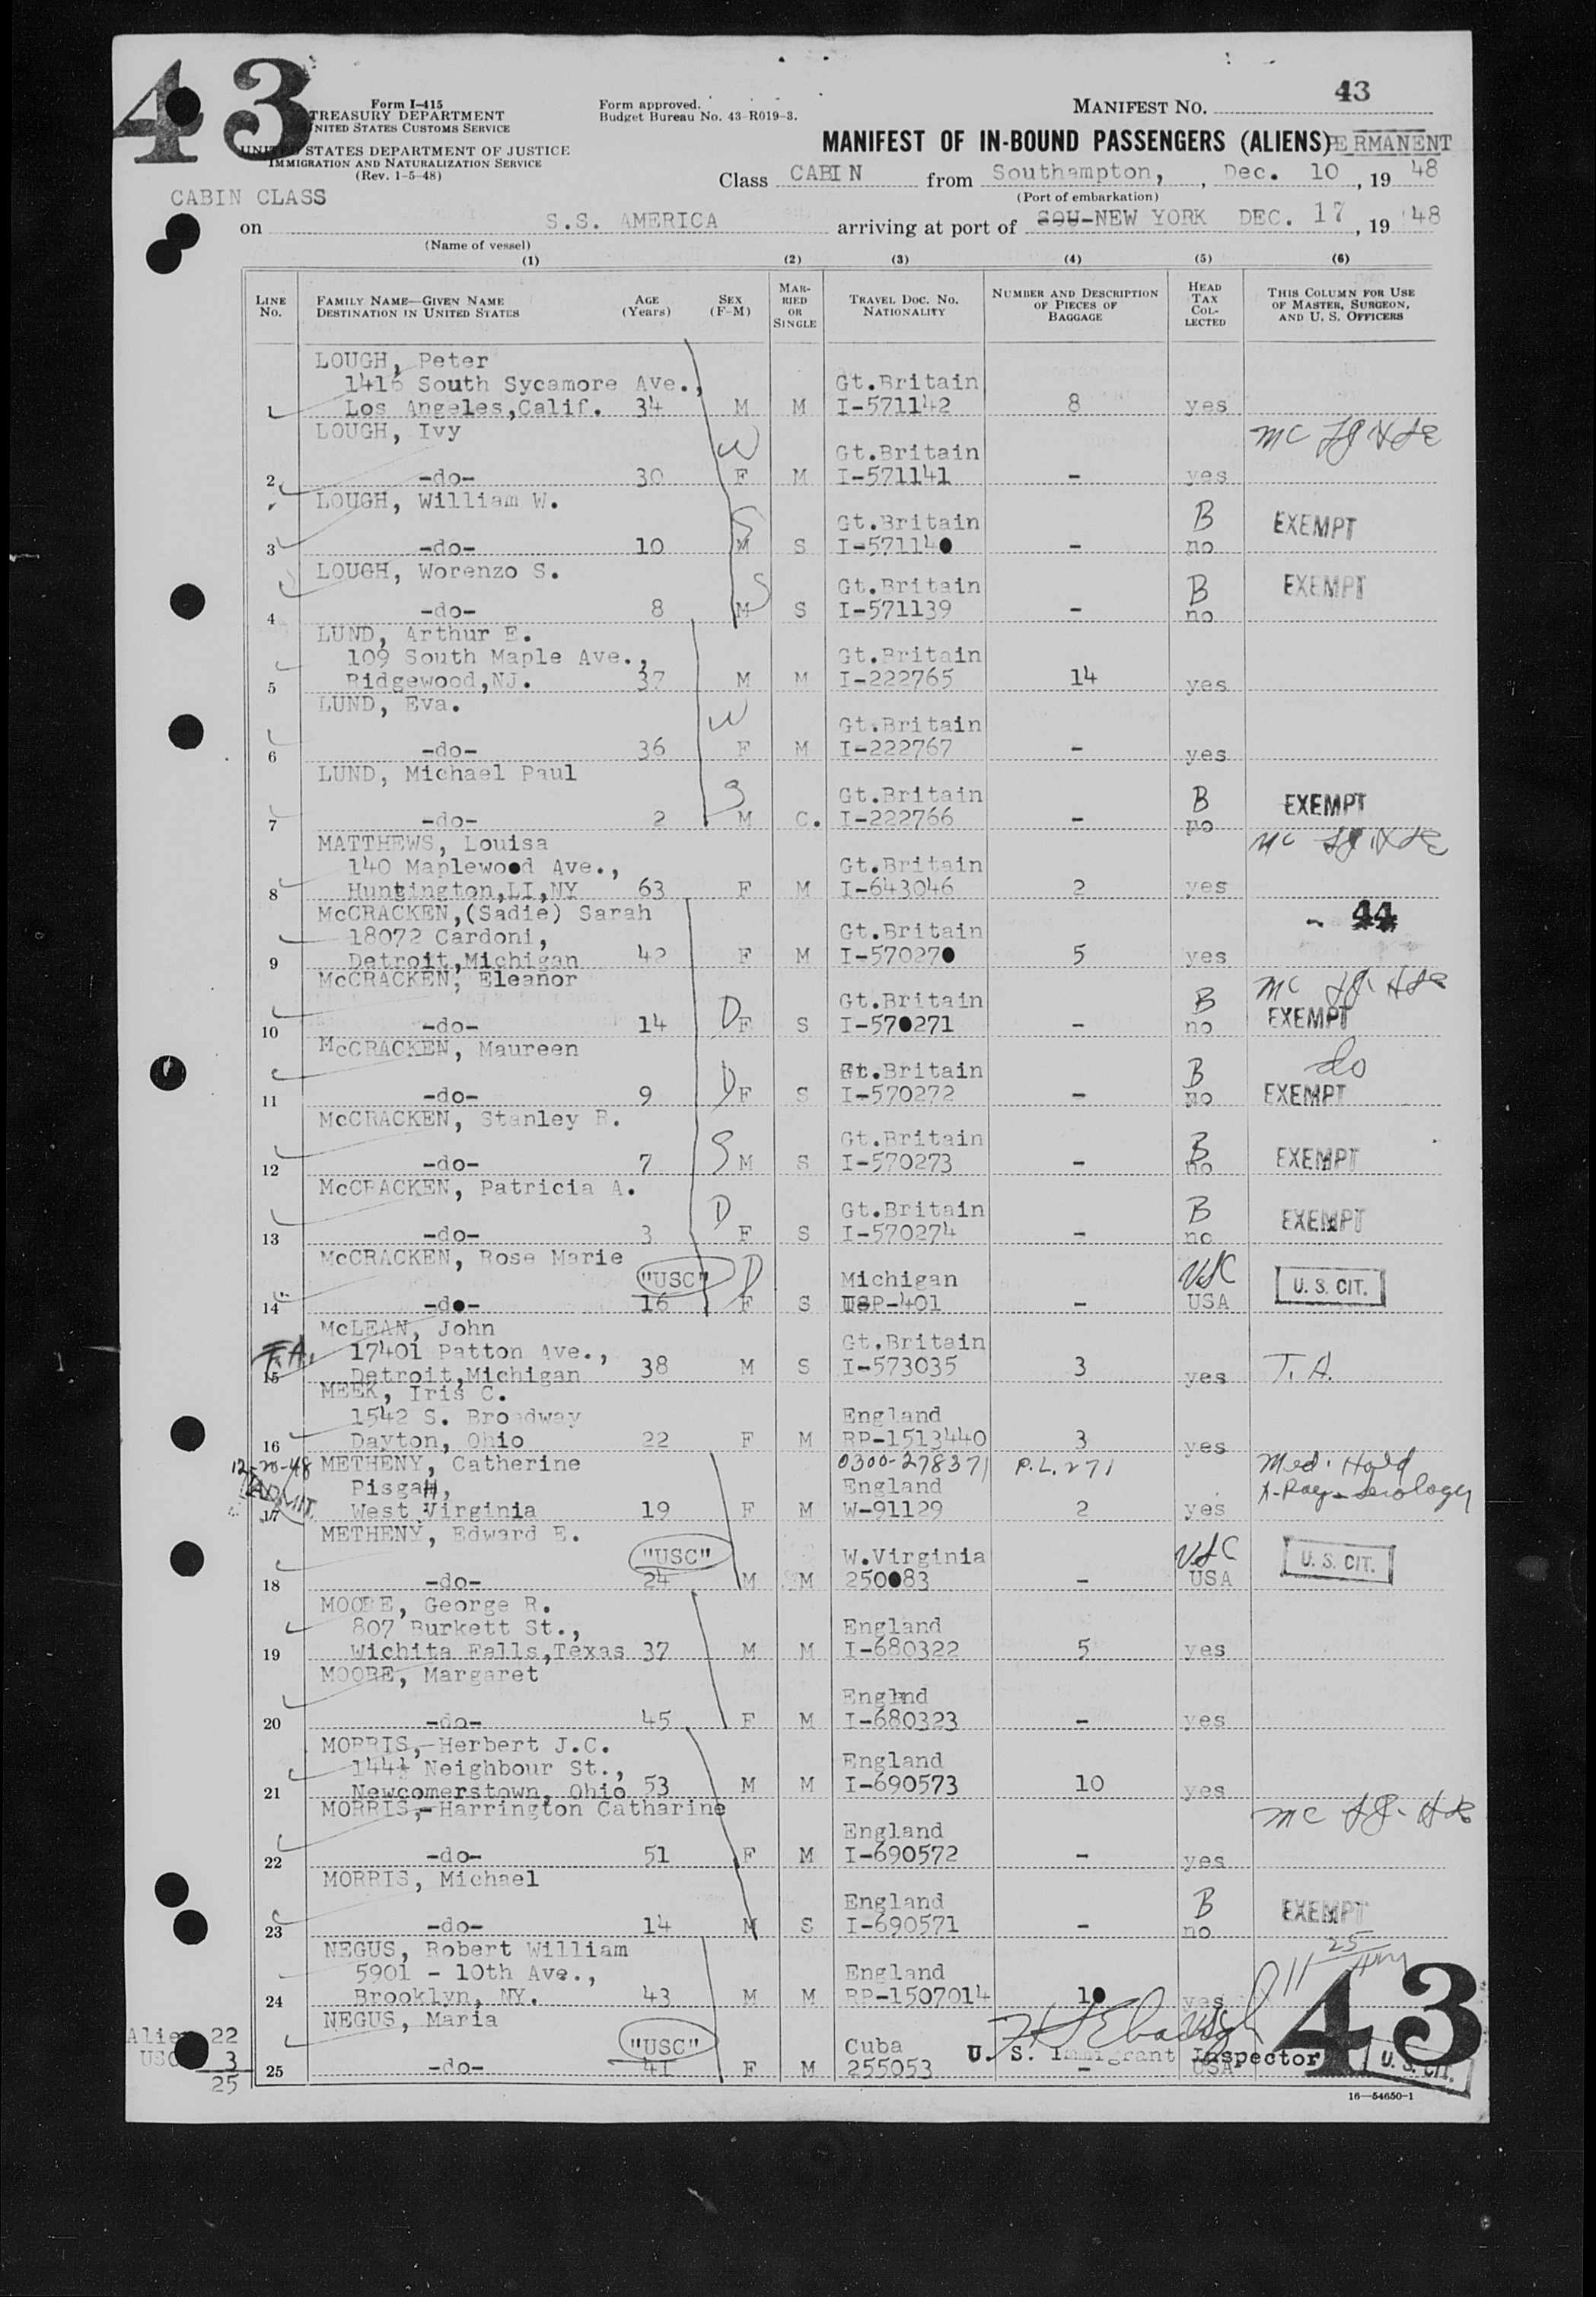 43
Form I-415
TREASURY DEPARTMENT
UNITED STATES CUSTOMS SERVICE
UNITED STATES DEPARTMENT OF JUSTICE
IMMIGRATION AND NATURALIZATION SERVICE
(Rev. 1-5-48)
Form approved.
Budget Bureau No. 43-R019-3.
MANIFEST NO. 43
MANIFEST OF IN-BOUND PASSENGERS (ALIENS) PERMANENT
Class CABIN from Southampton, , Dec. 10, 19 48
(Port of embarkation)
CABIN CLASS
on S.S. AMERICA arriving at port of SOU-NEW YORK DEC. 17, 19 48
(Name of vessel)
(1) (2) (3) (4) (5) (6)
LINE No. FAMILY NAME—GIVEN NAME DESTINATION IN UNITED STATES AGE (Years) SEX (F-M) MARRIED OR SINGLE TRAVEL DOC. NO. NATIONALITY NUMBER AND DESCRIPTION OF PIECES OF BAGGAGE HEAD TAX COLLECTED THIS COLUMN FOR USE OF MASTER, SURGEON, AND U. S. OFFICERS
LOUGH, Peter
1416 South Sycamore Ave., Gt.Britain
1 Los Angeles,Calif. 34 M M I-571142 8 yes
LOUGH, Ivy
W Gt.Britain
2 -do- 30 F M I-571141 - yes
LOUGH, William W.
S Gt.Britain B EXEMPT
3 -do- 10 M S I-571140 - no
LOUGH, Worenzo S.
S Gt.Britain B EXEMPT
4 -do- 8 M S I-571139 - no
LUND, Arthur E.
109 South Maple Ave., Gt.Britain
5 Ridgewood,NJ. 37 M M I-222765 14 yes
LUND, Eva.
W Gt.Britain
6 -do- 36 F M I-222767 - yes
LUND, Michael Paul
S Gt.Britain B EXEMPT
7 -do- 2 M C. I-222766 - no
MATTHEWS, Louisa
140 Maplewood Ave., Gt.Britain
8 Huntington,LI,NY 63 F M I-643046 2 yes
McCRACKEN,(Sadie) Sarah - 44
18072 Cardoni, Gt.Britain
9 Detroit,Michigan 42 F M I-570270 5 yes
McCRACKEN, Eleanor
D Gt.Britain B EXEMPT
10 -do- 14 F S I-570271 - no
McCRACKEN, Maureen do
D Gt.Britain B
11 -do- 9 F S I-570272 - no EXEMPT
McCRACKEN, Stanley R.
S Gt.Britain B
12 -do- 7 M S I-570273 - no EXEMPT
McCRACKEN, Patricia A.
D Gt.Britain B EXEMPT
13 -do- 3 F S I-570274 - no
McCRACKEN, Rose Marie
"USC" D Michigan USC U. S. CIT.
14 -do- 16 F S USP-401 - USA
McLEAN, John
T.A. 17401 Patton Ave., Gt.Britain
15 Detroit,Michigan 38 M S I-573035 3 yes T. A.
MEEK, Iris C.
1542 S. Broadway England
16 Dayton, Ohio 22 F M RP-1513440 3 yes
12-20-48 METHENY, Catherine 0300-278371 P.L. 271 Med. Hold
ADMIT. Pisgah, England X-Ray - Serology
17 West Virginia 19 F M W-91129 2 yes
METHENY, Edward E.
"USC" W.Virginia USC U. S. CIT.
18 -do- 24 M M 250083 - USA
MOORE, George R.
807 Burkett St., England
19 Wichita Falls,Texas 37 M M I-680322 5 yes
MOORE, Margaret
England
20 -do- 45 F M I-680323 - yes
MORRIS,-Herbert J.C.
144½ Neighbour St., England
21 Newcomerstown, Ohio 53 M M I-690573 10 yes
MORRIS,-Harrington Catharine
England
22 -do- 51 F M I-690572 - yes
MORRIS, Michael
England B EXEMPT
23 -do- 14 M S I-690571 - no
NEGUS, Robert William
5901 - 10th Ave., England
24 Brooklyn, NY. 43 M M RP-1507014 10 yes
NEGUS, Maria
Alien 22 "USC" Cuba USC
USC 3 U. S. Immigrant Inspector
25 -do- 41 F M 255053 - USA U. S. CIT.
25
43
16—54650-1